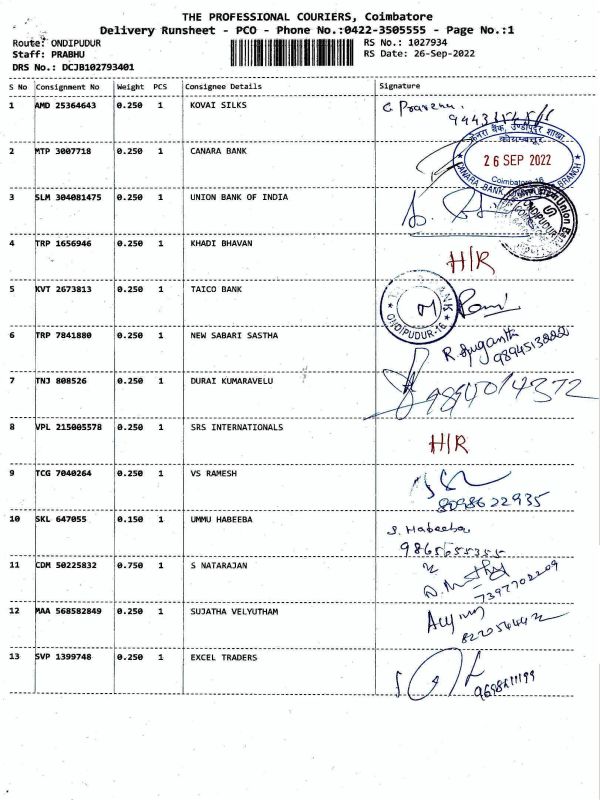 THE PROFESSIONAL COURIERS, Coimbatore
Delivery Runsheet - PCO - Phone No.:0422-3505555 - Page No.:1
Route: ONDIPUDUR RS No.: 1027934
Staff: PRABHU RS Date: 26-Sep-2022
DRS No.: DCJB102793401
S No Consignment No Weight PCS Consignee Details Signature
1 AMD 25364643 0.250 1 KOVAI SILKS
2 MTP 3007718 0.250 1 CANARA BANK
26 SEP 2022
Coimbatore-16
CANARA BANK BRANCH
3 SLM 304081475 0.250 1 UNION BANK OF INDIA
Union Bank
ONDIPUDUR
4 TRP 1656946 0.250 1 KHADI BHAVAN H/R
5 KVT 2673813 0.250 1 TAICO BANK
ONDIPUDUR-16
6 TRP 7841880 0.250 1 NEW SABARI SASTHA
R. Suganth
7 TNJ 808526 0.250 1 DURAI KUMARAVELU 9894014372
8 VPL 215005578 0.250 1 SRS INTERNATIONALS H/R
9 TCG 7040264 0.250 1 VS RAMESH
8098622935
10 SKL 647055 0.150 1 UMMU HABEEBA S. Habeeba
9865655355
11 CDM 50225832 0.750 1 S NATARAJAN
7397702209
12 MAA 568582849 0.250 1 SUJATHA VELYUTHAM
13 SVP 1399748 0.250 1 EXCEL TRADERS